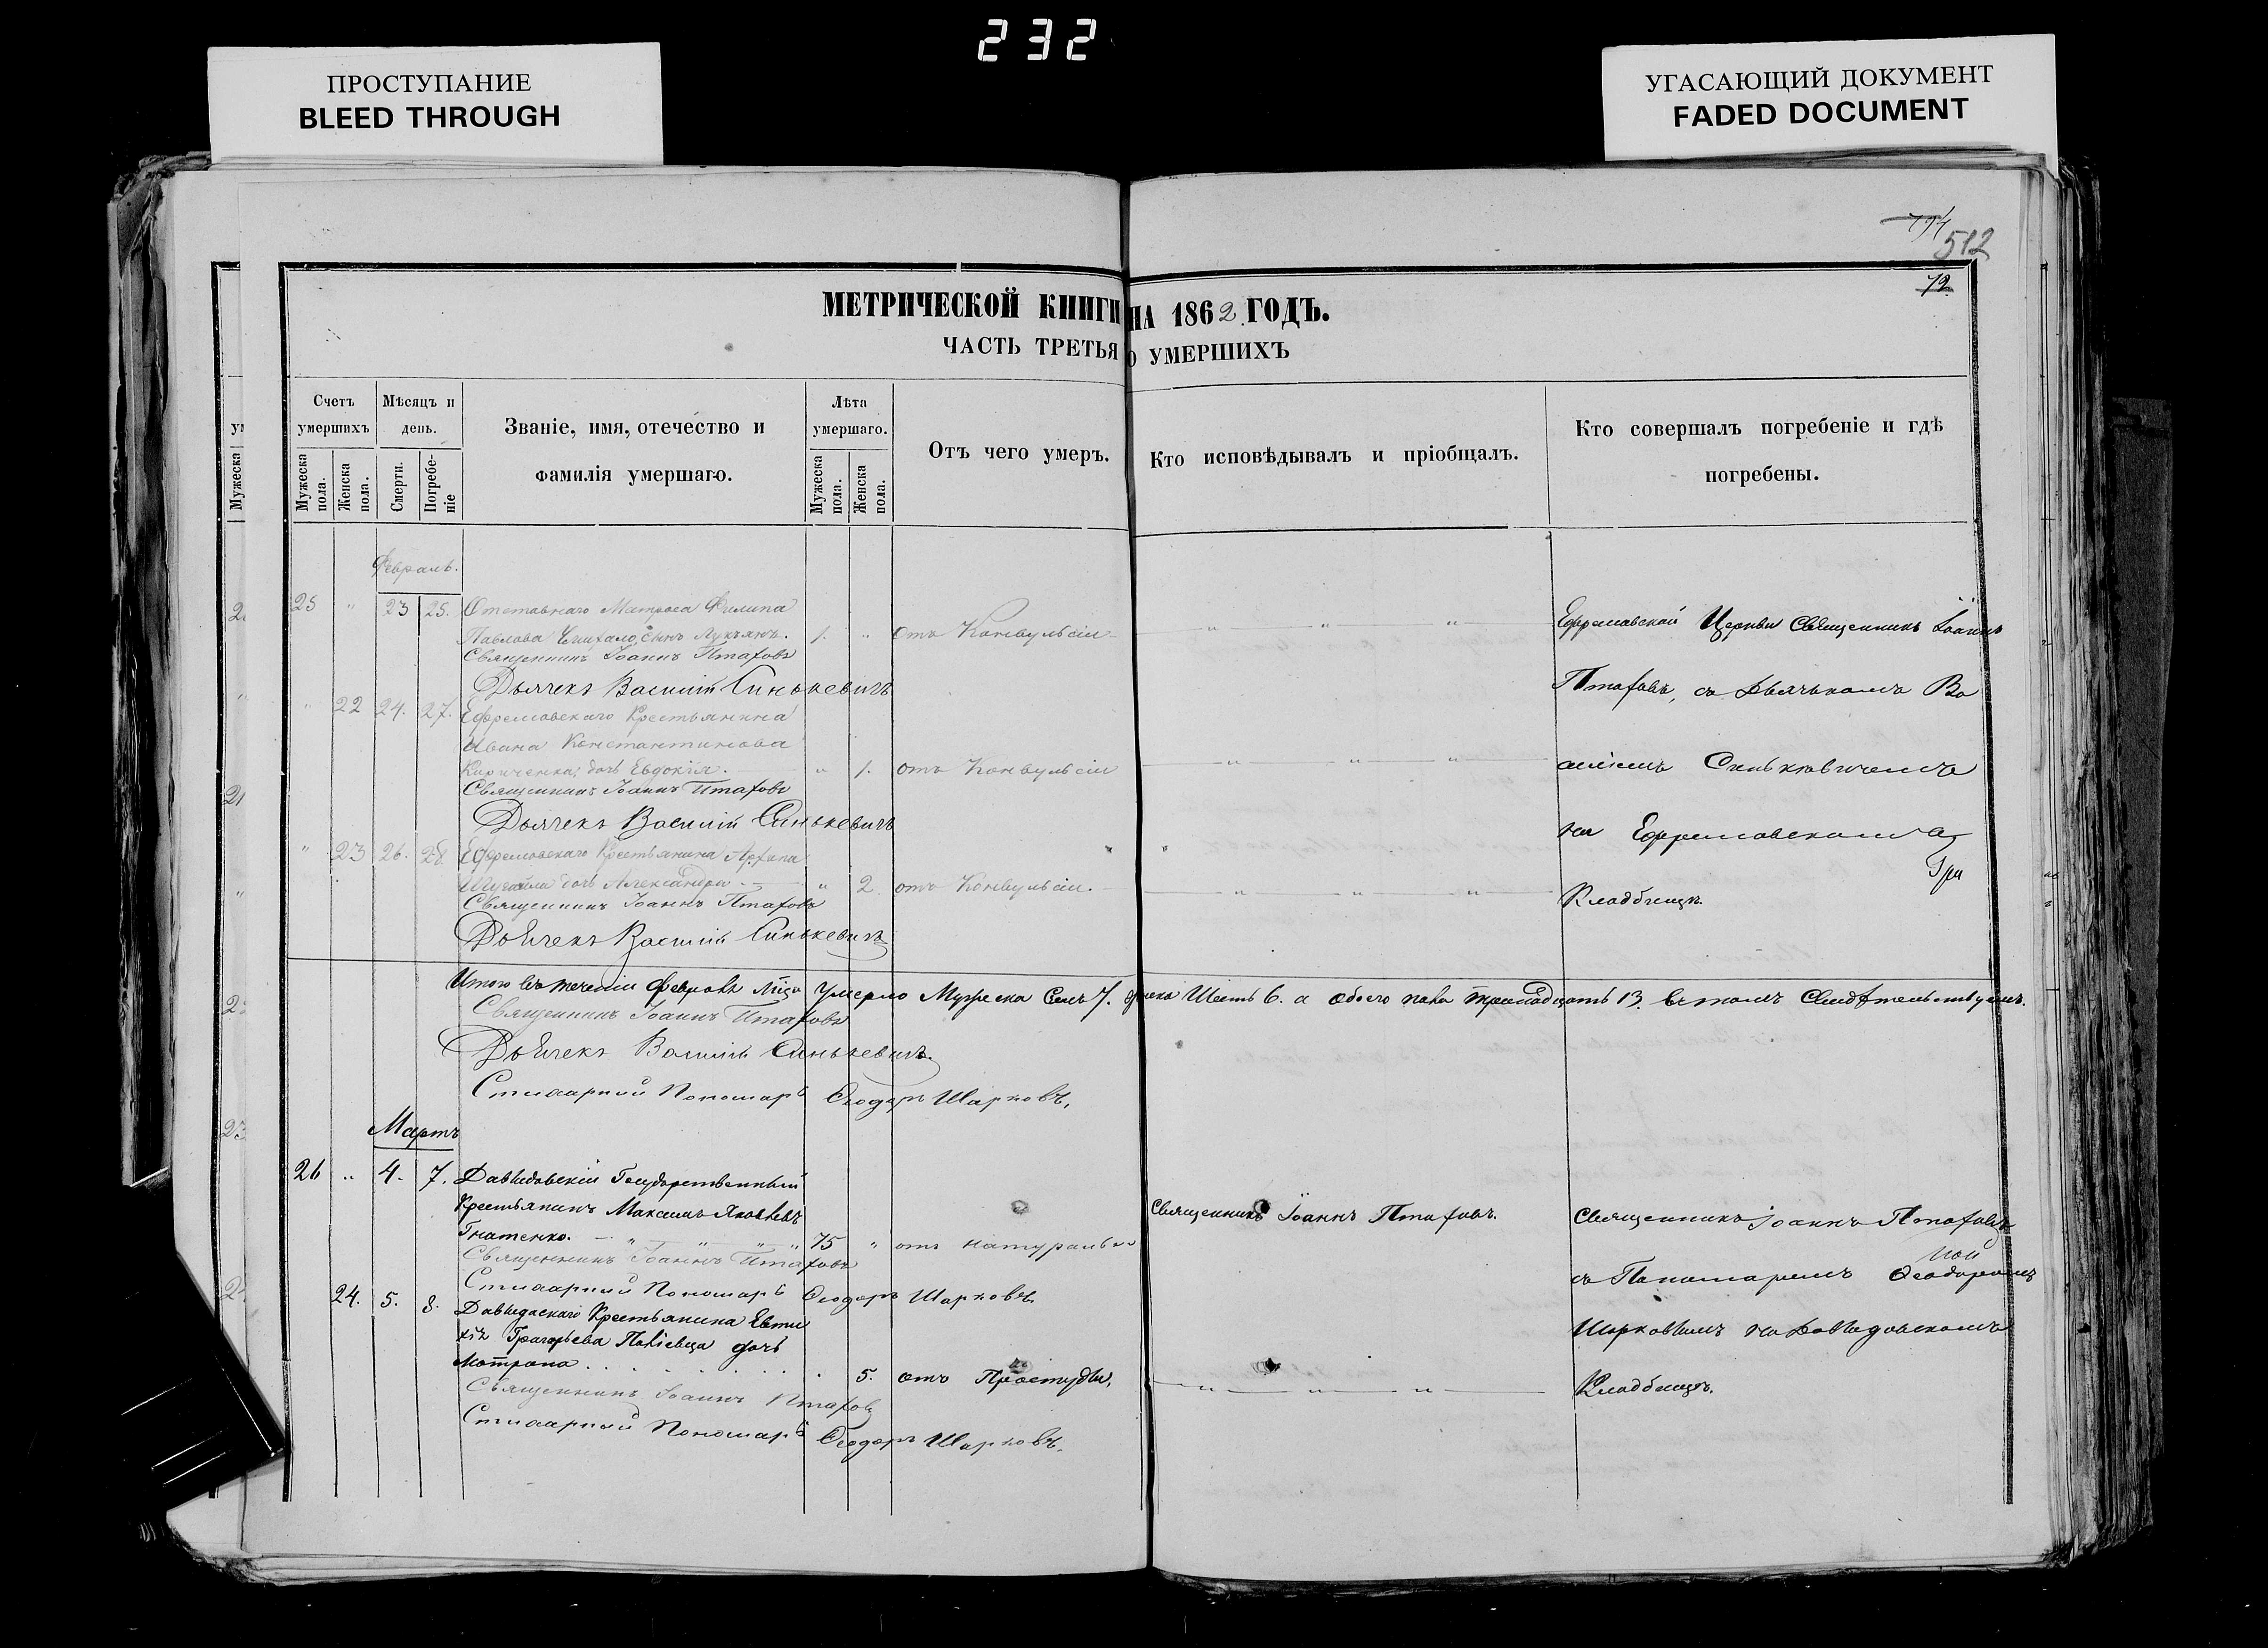 232
ПРОСТУПАНИЕ
BLEED THROUGH
УГАСАЮЩИЙ ДОКУМЕНТ
FADED DOCUMENT
512
72
МЕТРИЧЕСКОЙ КНИГИ НА 1862 ГОДЪ.
ЧАСТЬ ТРЕТЬЯ О УМЕРШИХЪ
Счетъ умершихъ
Мужеска пола.
Женска пола.
Мѣсяцъ и день.
Смерти.
Погребеніе
Званіе, имя, отечество и
фамилія умершаго.
Лѣта умершаго.
Мужеска пола.
Женска пола.
Отъ чего умеръ.
Кто исповѣдывалъ и пріобщалъ.
Кто совершалъ погребеніе и гдѣ
погребены.
Февраль.
25 " 23 25. Отставнаго Матроса Филипа
Павлова сынъ Лукъянъ. 1. " отъ Конвульсіи " " "
Священникъ Іоаннъ Птаховъ
Дьячекъ Василій Синькевичъ
Ефремовской Церкви Священникъ Іоаннъ
Птаховъ, съ дьячькомъ Ва
силіемъ Синькевичемъ
на Ефремовскомъ
Кладбищѣ.
" 22 24. 27. Ефремовскаго Крестьянина
Ивана Константинова
Кириченка, дочь Евдокія. " 1. отъ Конвульсіи " " "
Священникъ Іоаннъ Птаховъ
Дьячекъ Василій Синькевичъ
" 23 26. 28. Ефремовскаго Крестьянина
дочь Александра " 2. отъ Конвульсіи. " " "
Священникъ Іоаннъ Птаховъ
Дьячекъ Василій Синькевичъ
Итого въ теченіи Февраля Мца Умерло Мужеска Семь 7. Шесть 6. а обоего пола тринадцать 13. въ томъ Свидѣтельствуемъ.
Священникъ Іоаннъ Птаховъ
Дьячекъ Василій Синькевичъ.
Стихарный Пономарь Ѳеодоръ Шарковъ.
Мартъ
26 " 4. 7. Давыдовскій Государственный
Крестьянинъ Максимъ Яковлевъ
Гнатенко. " " " " 75 " отъ натуральн
Священникъ Іоаннъ Птаховъ
Стихарный Пономарь Ѳеодоръ Шарковъ
Священникъ Іоаннъ Птаховъ.
Священникъ Іоаннъ Птаховъ
съ Пономаремъ Ѳеодоромъ
Шарковымъ на Давыдовскомъ
Кладбищѣ.
24. 5. 8. Давыдовскаго Крестьянина Евти
хія Григорьева дочь
Матрона . . . . . . . 5. отъ Простуды. " " "
Священникъ Іоаннъ Птаховъ
Стихарный Пономарь Ѳеодоръ Шарковъ.